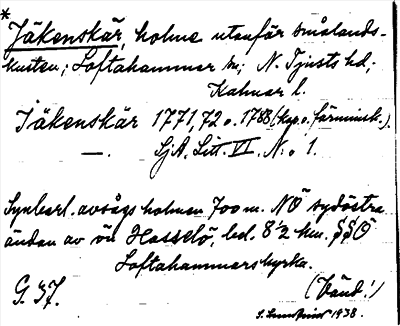 *
Jäkenskär, holme utanför smålands-
kusten; Loftahammar sn; N. Tjusts hd;
Kalmar l.
Jäkenskär 1771, 72 o. 1788 (kop. o. förminsk.).
—. SjA. Litt. VI. N:o 1.
Synbarl. avsågs holmen 700 m. NÖ sydöstra
ändan av ön Hasselö, bel. 8½ km. SSO
Loftahammars kyrka.
G. 37. (Vänd!)
1938.